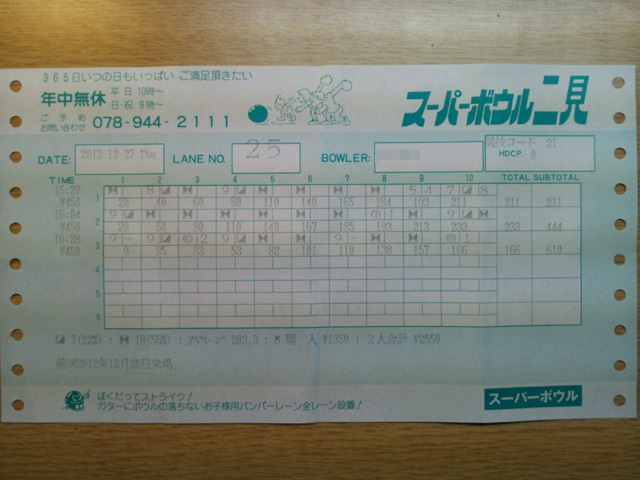 365日いつの日もいっぱい ご満足頂きたい
年中無休 平日 10時〜
日・祝 9時〜
ご予約
お問い合わせ 078-944-2111
スーパーボウル二見
DATE: 2012-12-27 Thu LANE NO. 25 BOWLER: 競技コード 21
HDCP. 0
TIME 1 2 3 4 5 6 7 8 9 10 TOTAL SUBTOTAL
15:27 1 8 9 5 4 7 8
¥450 20 40 60 80 110 140 165 184 193 211 211 211
16:04 2 9 9 1 9
¥450 20 50 80 110 140 167 185 193 213 233 233 444
16:28 3 9 - 9 2 9 9 - 9 1
¥450 9 25 33 53 82 101 110 138 157 166 166 610
4
5
6
7(22%) : 18(56%) : アベレージ 203.3 : M 個 人 ¥1350 : 2人合計 ¥2550
前回2012年12月25日来場。
ぼくだってストライク!
ガターにボウルの落ちないお子様用バンパーレーン全レーン設置!
スーパーボウル